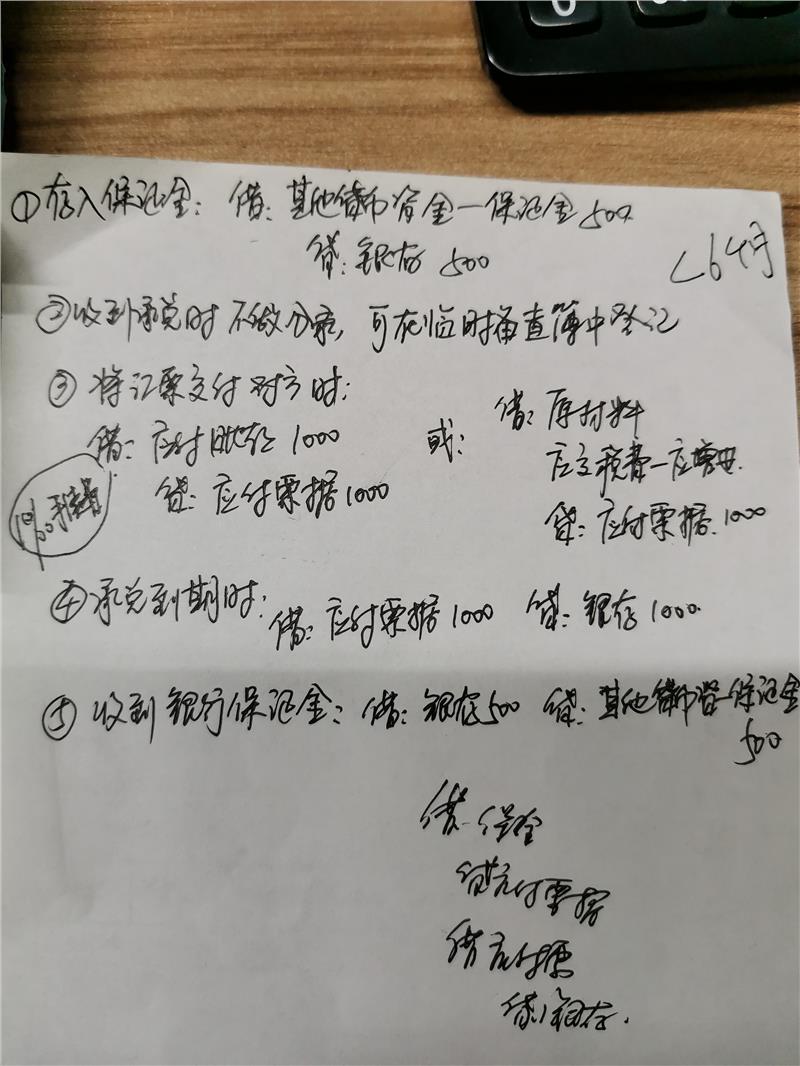 ①存入保证金：借：其他货币资金一保证金 500
贷：银存 500
<6个月
②收到承兑时不做分录，可在临时备查簿中登记
③将汇票交付对方时：
借：应付账款 1000
贷：应付票据 1000
或：
借：原材料
应交税费一应增
贷：应付票据 1000
手续费
④承兑到期时：借：应付票据 1000 贷：银存 1000.
⑤收到银行保证金：借：银存500 贷：其他货币资一保证金
500
借
贷应付票据
借应付票
贷银存.